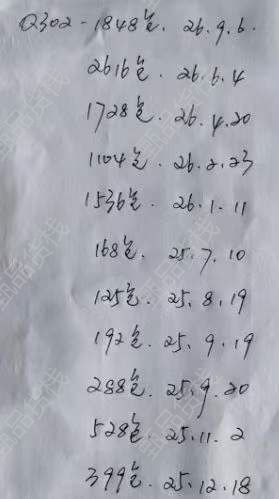 Q302-1848包. 26.9.6.
2616包. 26.6.4
1728包. 26.4.20
1104包. 26.2.23
1536包. 26.1.11
168包. 25.7.10
125包. 25.8.19
192包. 25.9.19
288包. 25.9.20
528包. 25.11.2
399包. 25.12.18